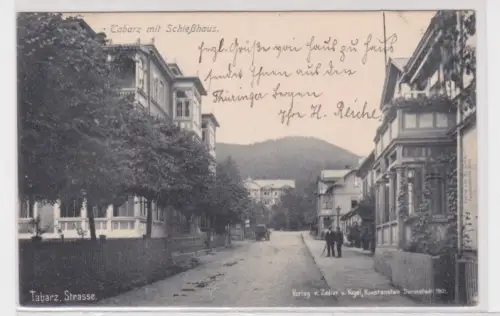 Tabarz mit Schießhaus.
Grüße von Haus zu Haus
sendet Ihnen aus den
Thüringer Bergen
Ihr H. Reiche
Tabarz, Strasse
Verlag v. Zedler u. Vogel, Kunstanstalt Darmstadt 1901.